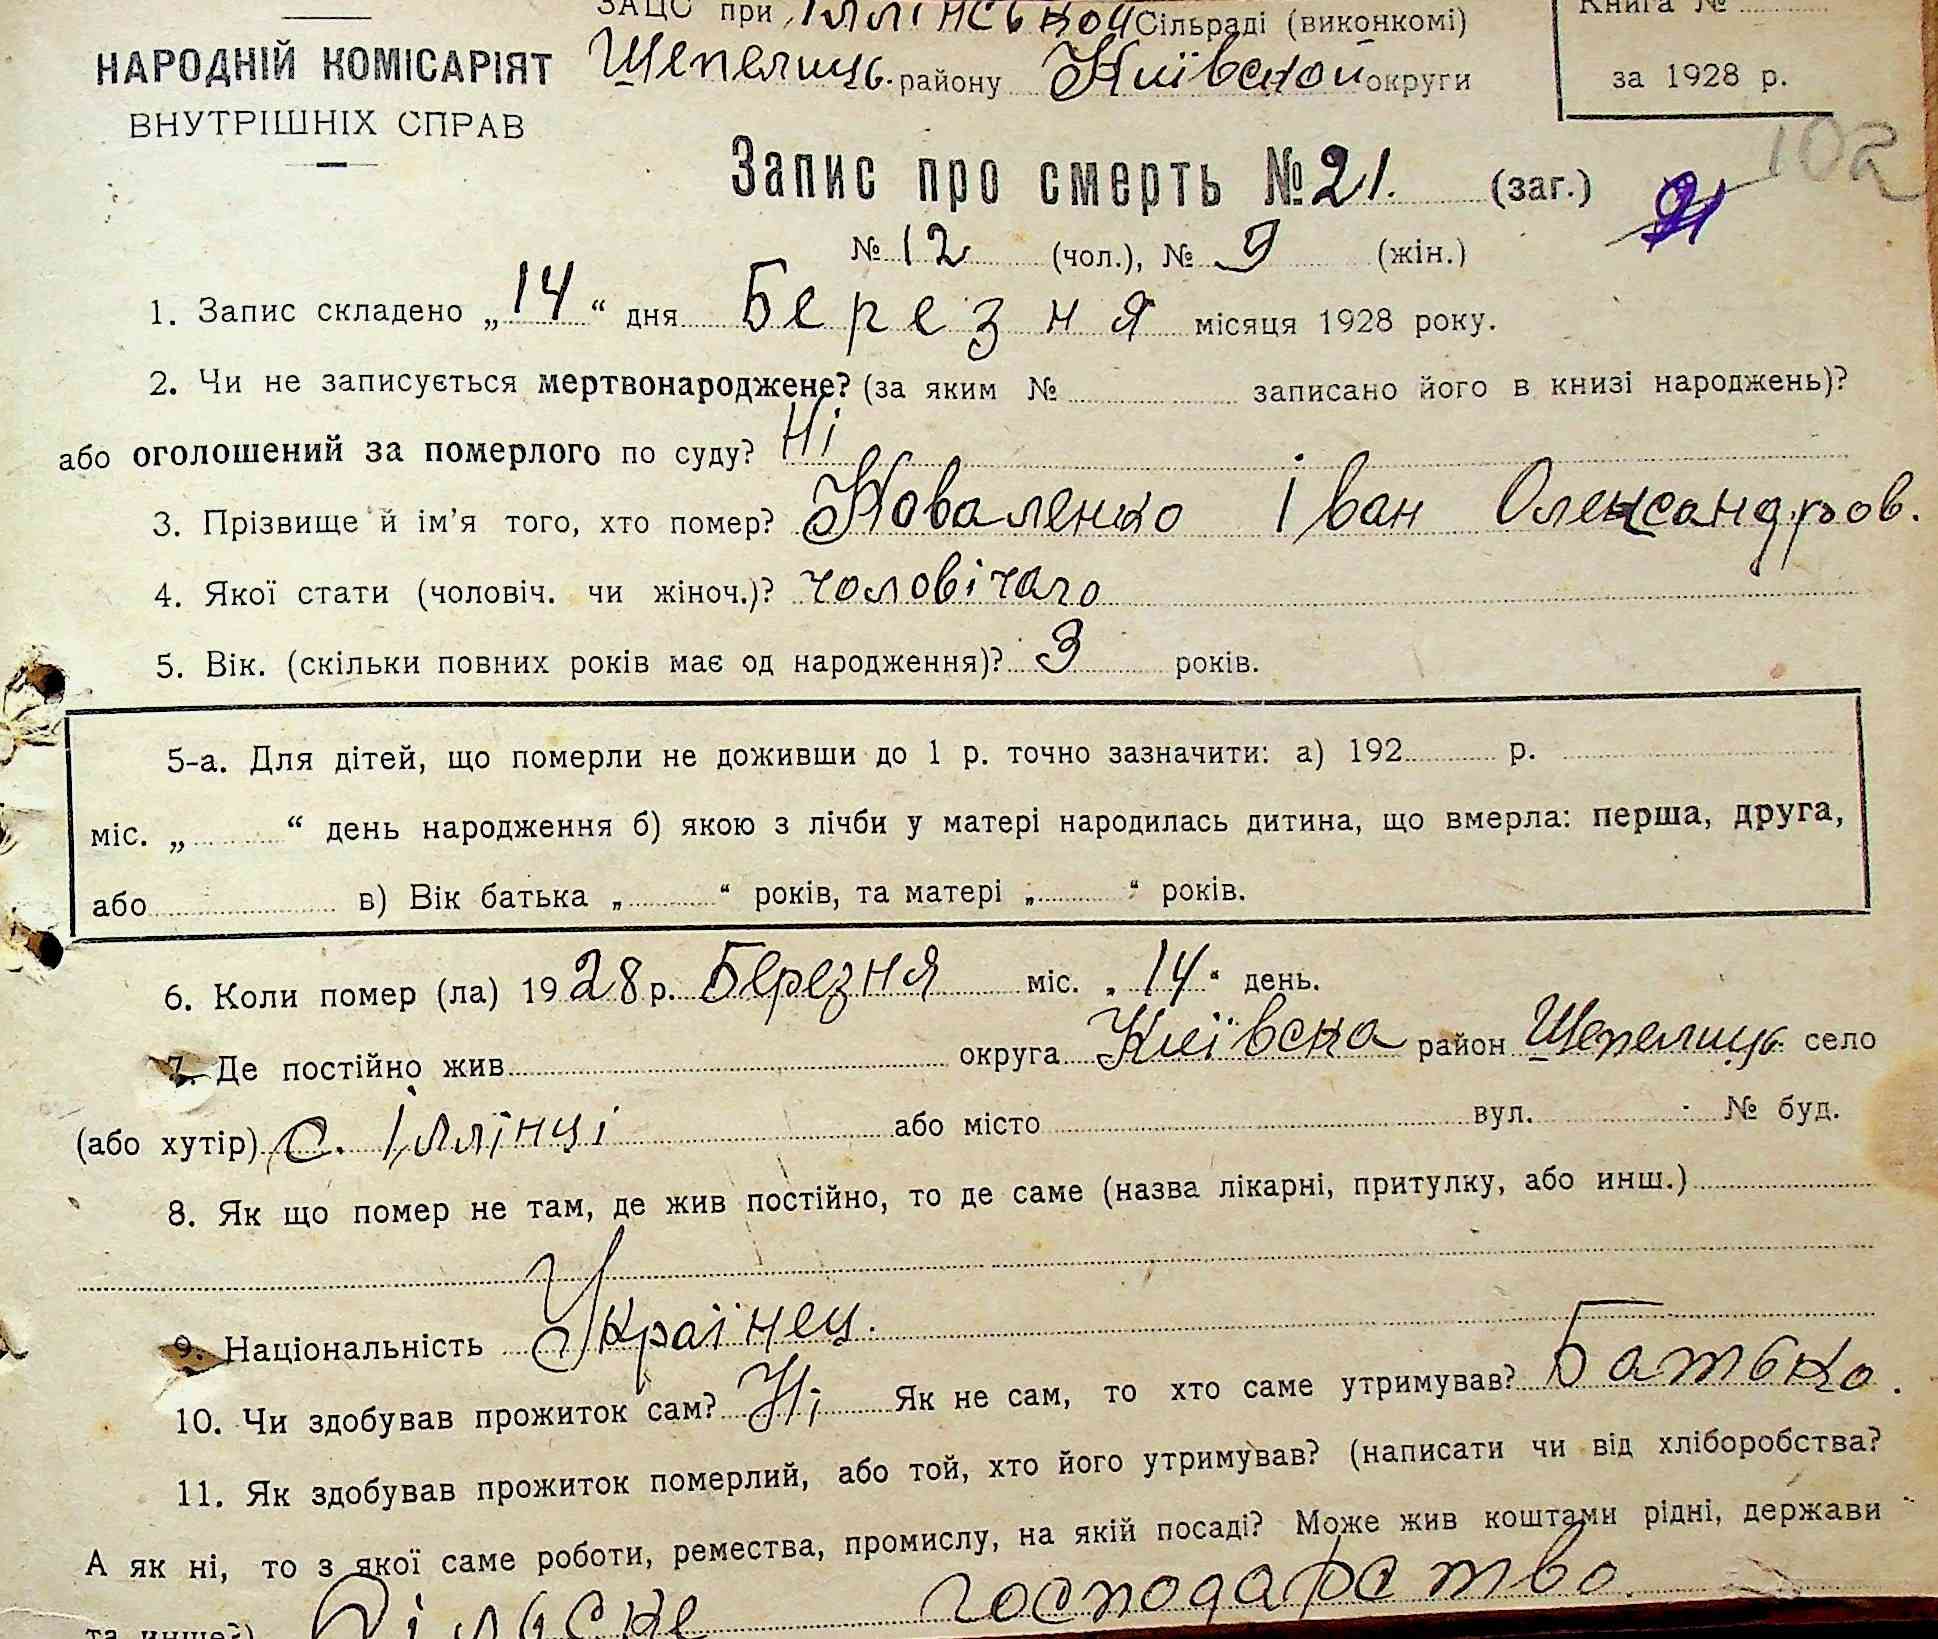 ЗАЦС при Іллінськой Сільраді (виконкомі)
Книга №
НАРОДНІЙ КОМІСАРІЯТ
ВНУТРІШНІХ СПРАВ
Шепелиць. району Київской округи
за 1928 р.
102
Запис про смерть № 21. (заг.)
21
№ 12 (чол.), № 9 (жін.)
1. Запис складено „14“ дня Березня місяця 1928 року.
2. Чи не записується мертвонароджене? (за яким № записано його в книзі народжень)?
або оголошений за померлого по суду? Ні
3. Прізвище й ім’я того, хто помер? Коваленко Іван Олександров.
4. Якої стати (чоловіч. чи жіноч.)? чоловічаго
5. Вік. (скільки повних років має од народження)? 3 років.
5-а. Для дітей, що померли не доживши до 1 р. точно зазначити: а) 192 р.
міс. „ “ день народження б) якою з лічби у матері народилась дитина, що вмерла: перша, друга,
або в) Вік батька „ “ років, та матері „ “ років.
6. Коли помер (ла) 1928 р. Березня міс. „14“ день.
7. Де постійно жив округа Київска район Шепелиць. село
(або хутір) с. Іллінці або місто вул. № буд.
8. Як що помер не там, де жив постійно, то де саме (назва лікарні, притулку, або инш.)
9. Національність Українец.
10. Чи здобував прожиток сам? Ні Як не сам, то хто саме утримував? Батько.
11. Як здобував прожиток померлий, або той, хто його утримував? (написати чи від хліборобства?
А як ні, то з якої саме роботи, ремества, промислу, на якій посаді? Може жив коштами рідні, держави
та инше?) Сільске господарство.